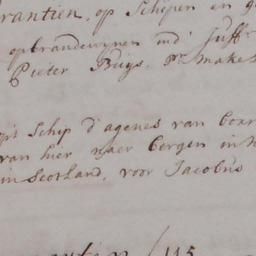 rantien, op Schepen en g
op brandewijnen ind Juffr
Pieter Buys. Pr make
Schip d'agenes van boor
van hier naer bergen in N
in Scotland, voor Jacobus
115